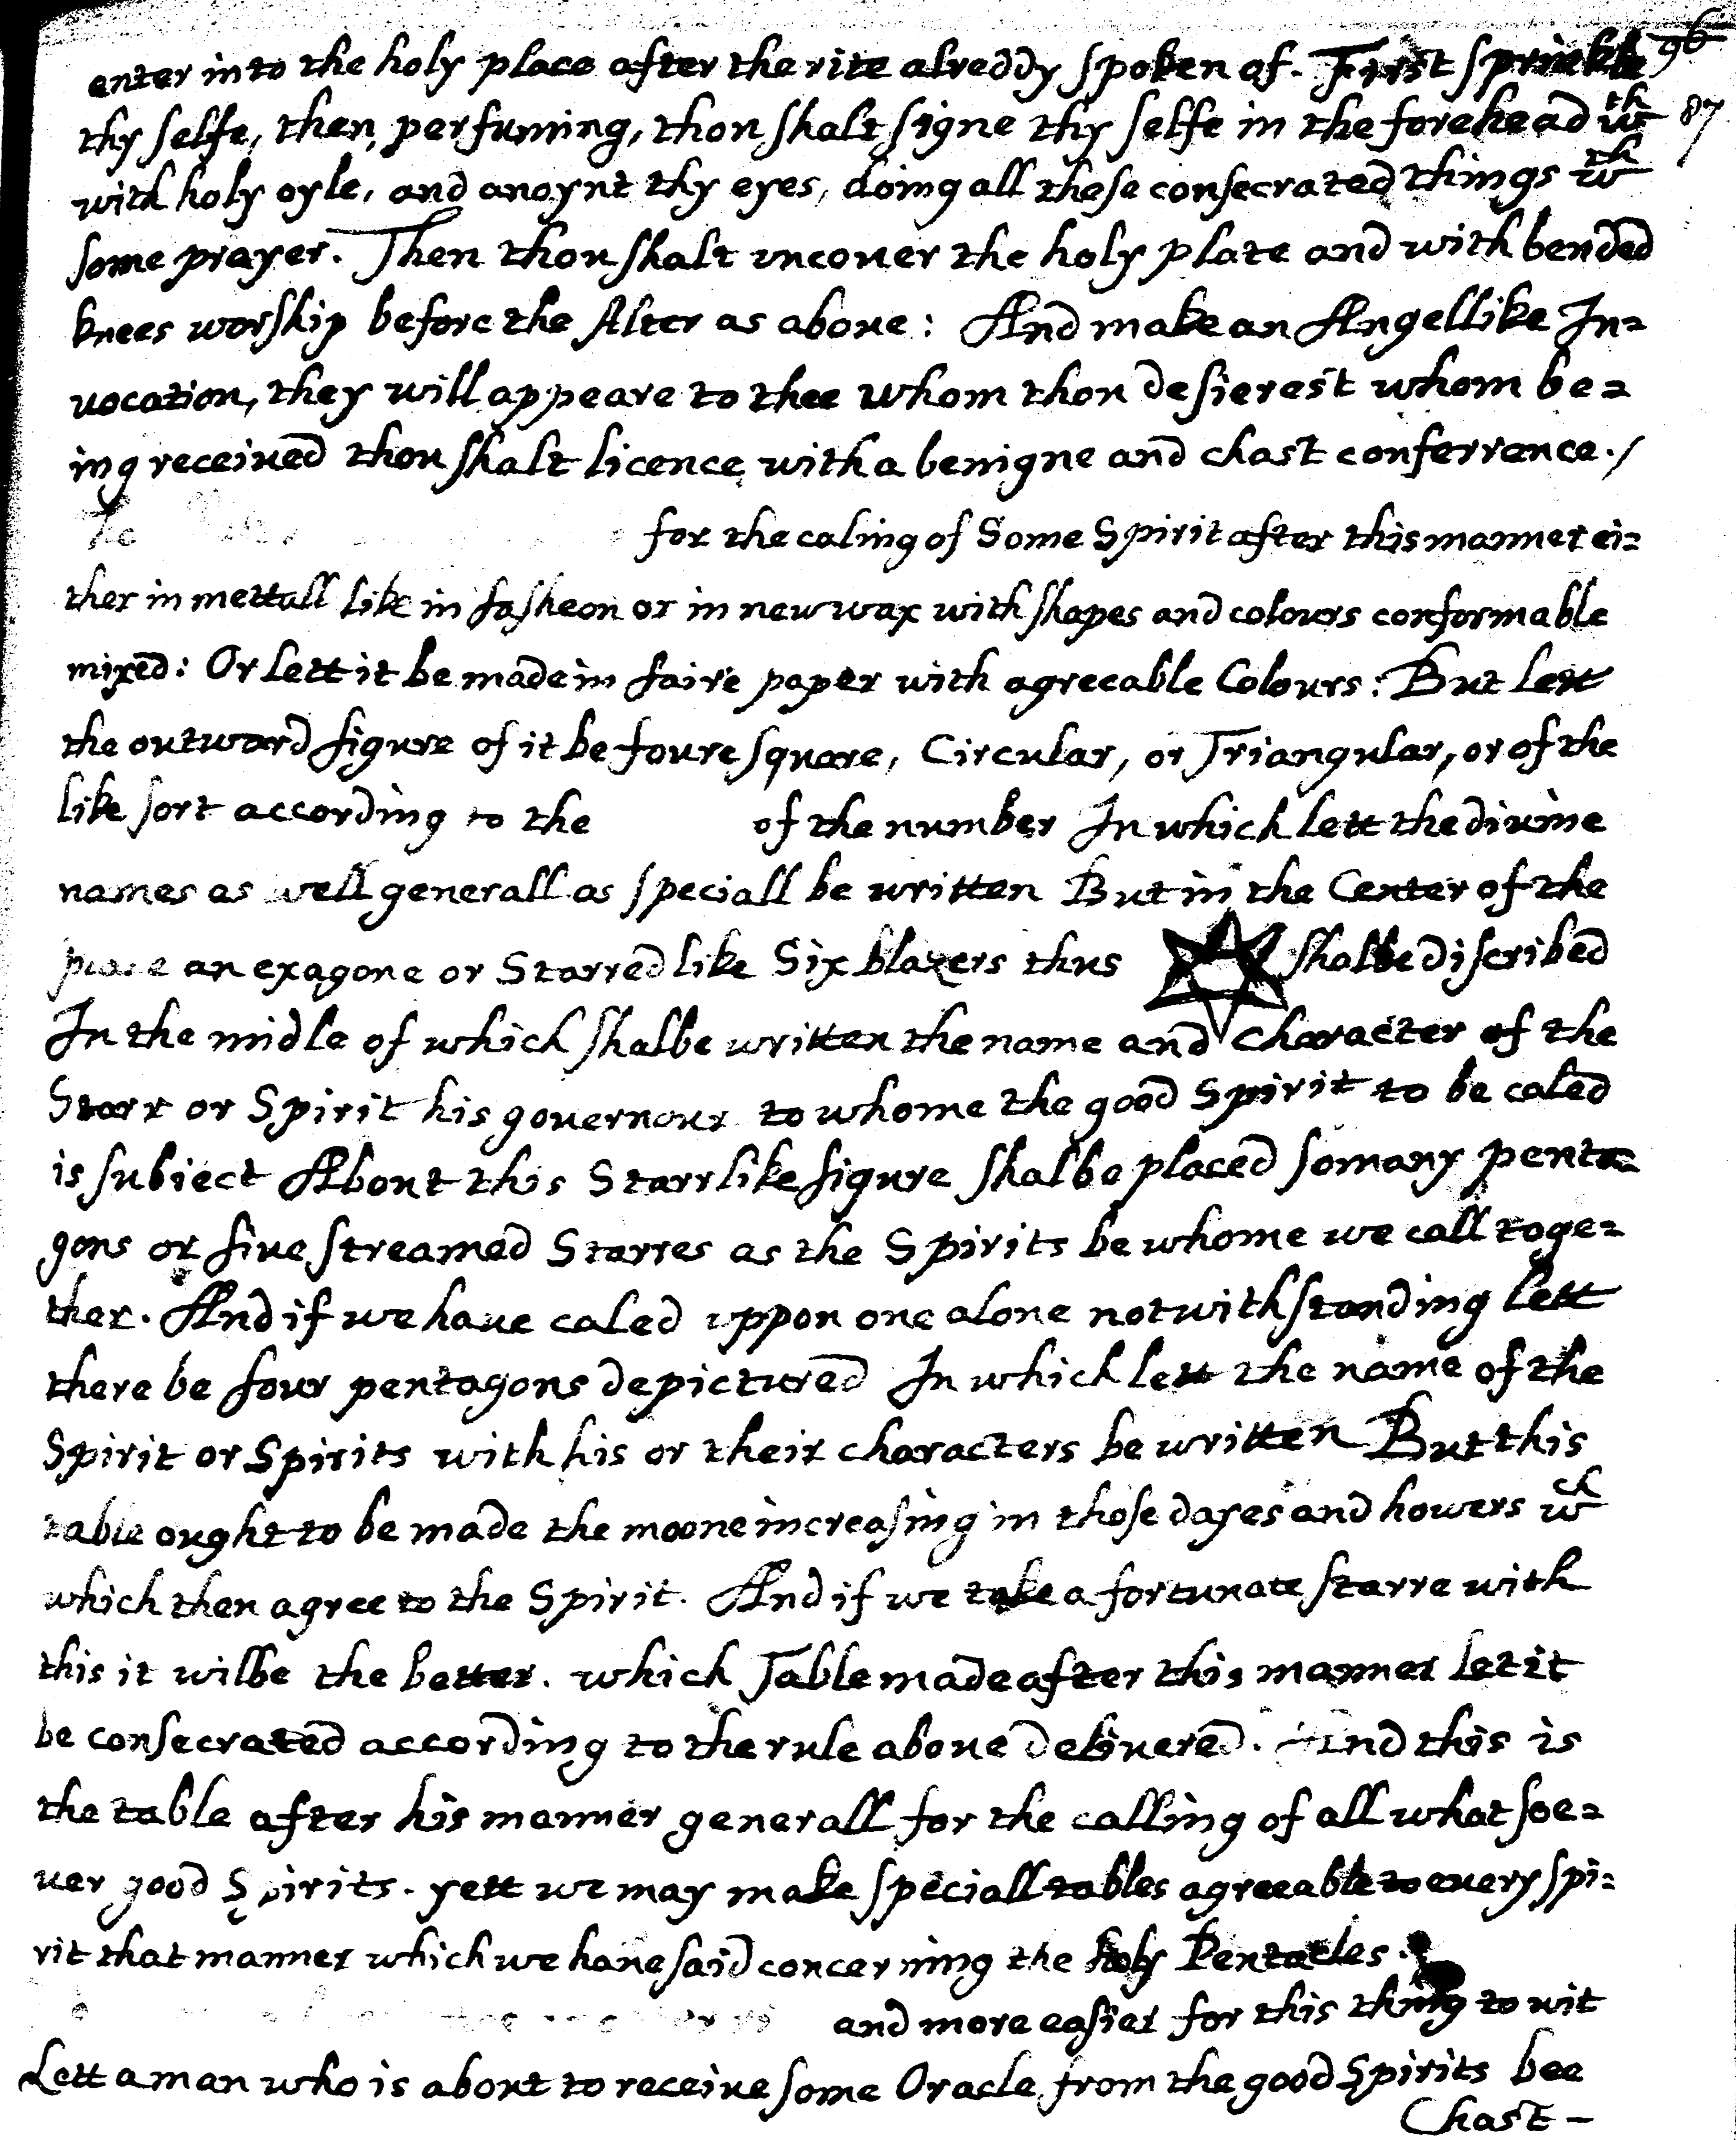 enter into the holy place after the rite alreddy spoken of. First sprinkle 96
thy selfe, then perfuming, thou shalt signe thy selfe in the forehead wth 87
with holy oyle, and anoynt thy eyes, doing all these consecrated things wth
some prayer. Then thou shalt vncouer the holy plate and with bended
knees worship before the Alter as aboue: And make an Angellike In=
uocation, they will appeare to thee whom thou desierest whom be=
ing receiued thou shalt licence with a benigne and chast conferrence./
for the caling of Some Spirit after this manner ei=
ther in mettall like in fasheon or in new wax with shapes and colours conformable
mixed: Or lett it be made in faire paper with agreeable Colours: But lett
the outward figure of it be foure square, Circular, or Triangular, or of the
like sort according to the of the number In which lett the diuine
names as well generall as speciall be written But in the Center of the
an exagone or Starred like Six blazers thus shalbe discribed
In the midle of which shalbe written the name and character of the
Starr or Spirit his gouernour to whome the good Spirit to be caled
is subiect About this Starrlike figure shalbe placed somany penta=
gons or fiue streamed Starres as the Spirits be whome we call toge=
ther. And if we haue caled vppon one alone notwithstanding lett
there be four pentagons depictured In which lett the name of the
Spirit or Spirits with his or their characters be written But this
table ought to be made the moone increasing in those dayes and howers wch
which then agree to the Spirit. And if we take a fortunate starre with
this it wilbe the better. which Table made after this manner let it
be consecrated according to the rule aboue deliuered. And this is
the table after his manner generall for the calling of all what soe=
uer good Spirits. yett we may make speciall tables agreeable to euery spi=
rit that manner which we haue said concerning the holy Pentacles.
and more easier for this thing to wit
Lett a man who is about to receiue some Oracle from the good Spirits bee
Chast -